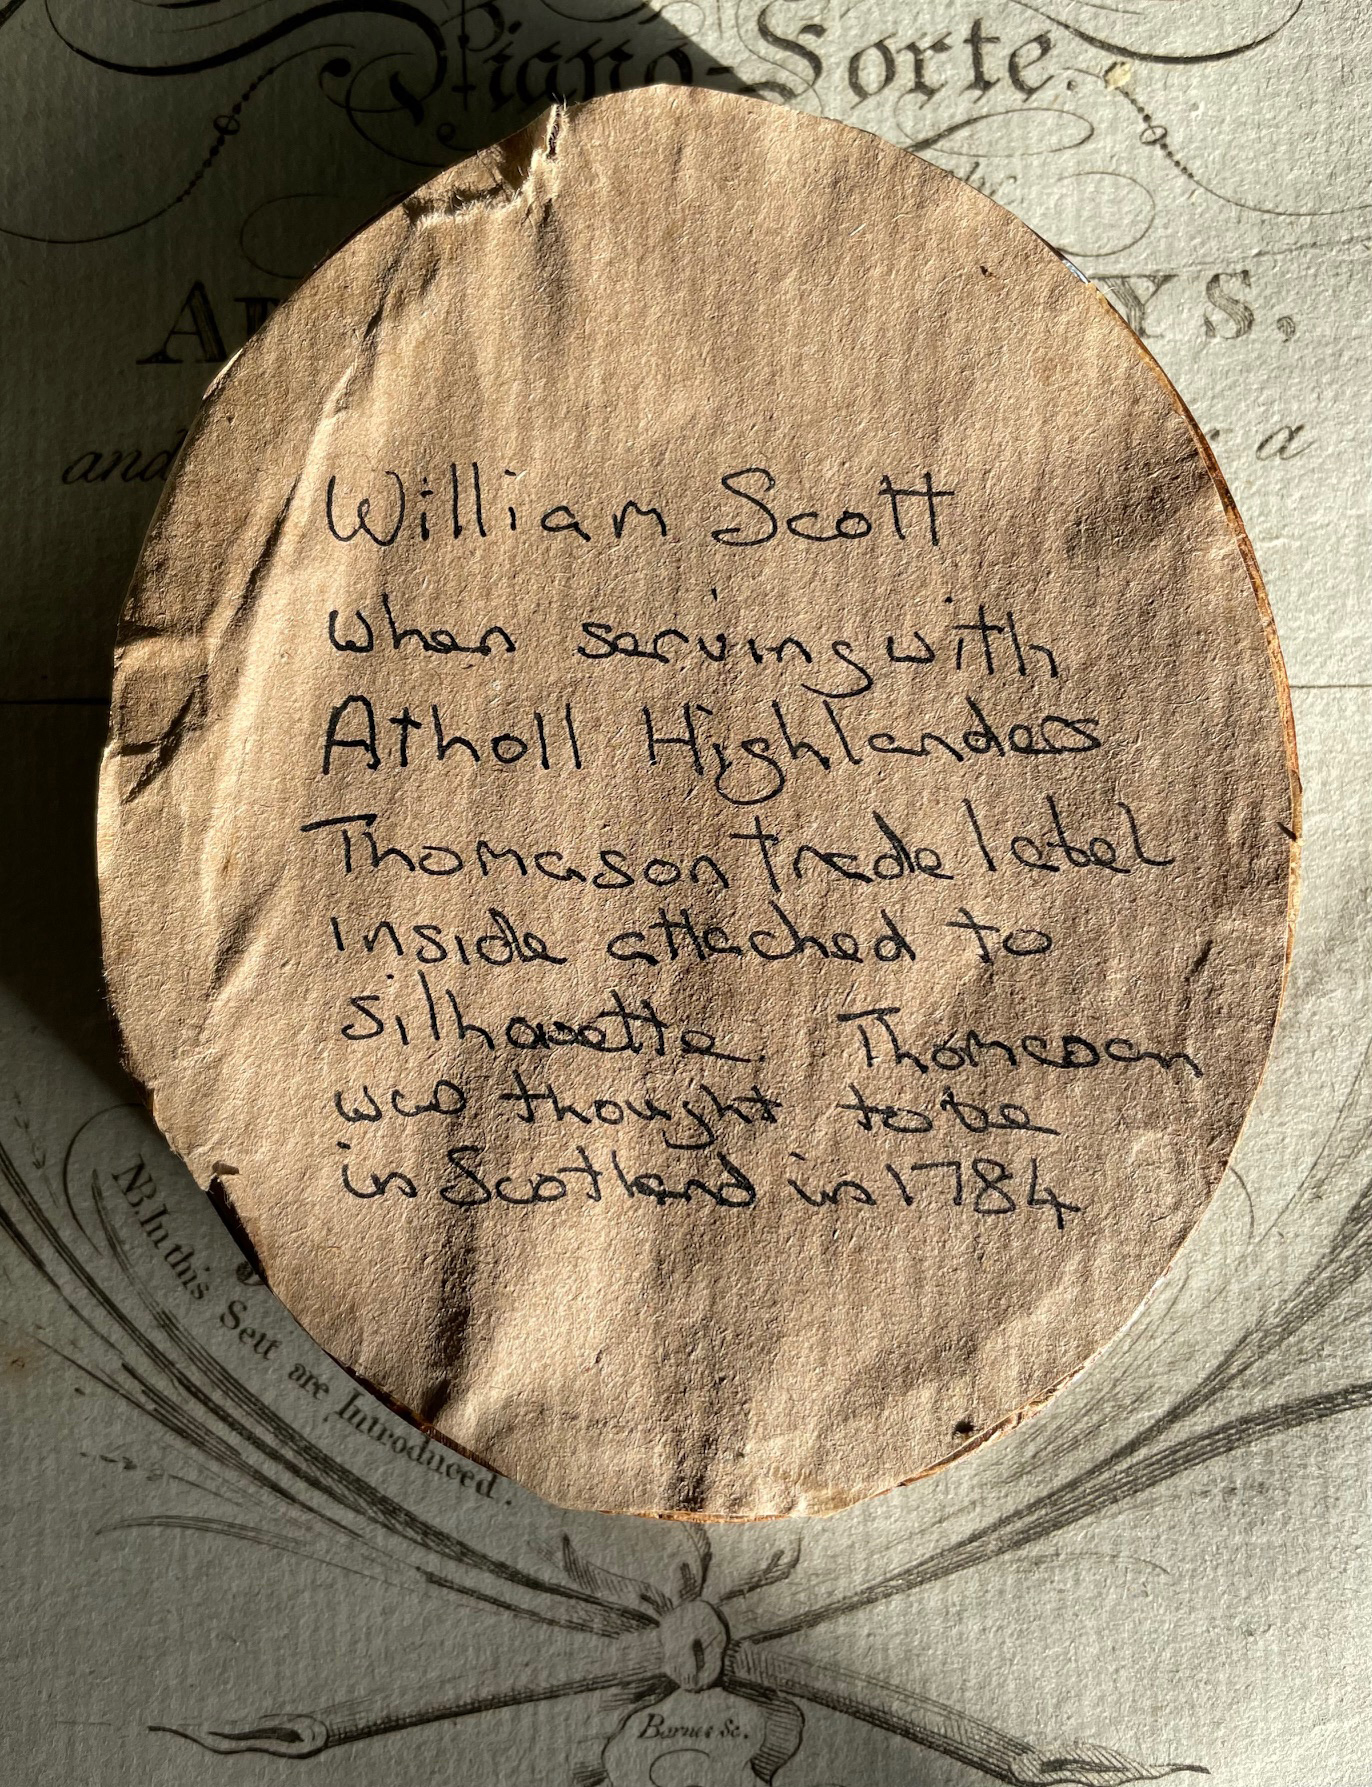 Piano-Forte.
YS.
and
a
William Scott
when serving with
Atholl Highlanders
Thomason trade label
inside attached to
silhouette. Thomason
was thought to be
in Scotland in 1784
NB. In this Sett are Introduced.
Barnes Sc.